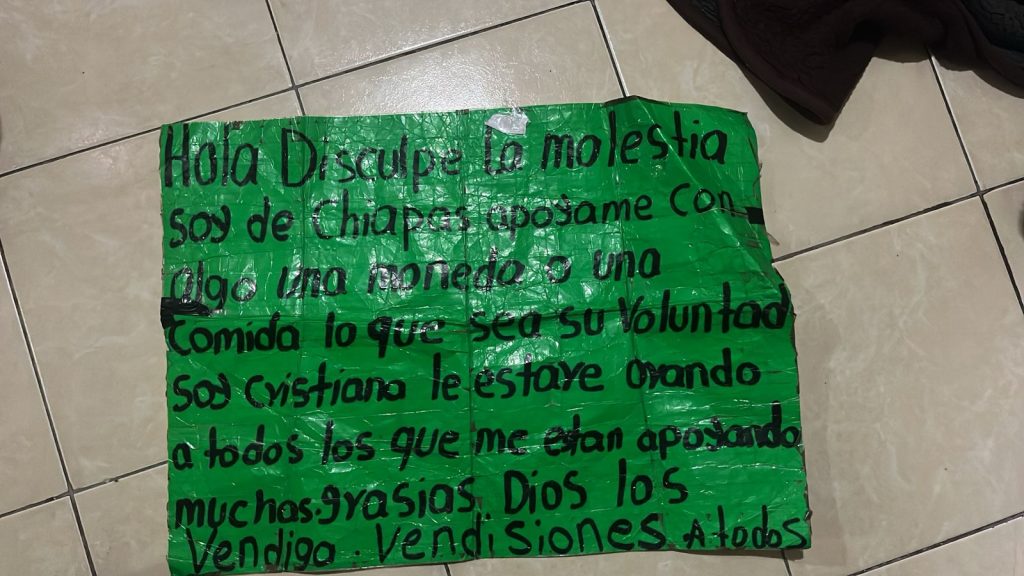 Hola Disculpe la molestia
soy de Chiapas apoyame con
algo una moneda o una
comida lo que sea su Voluntad
soy cristiana le estare orando
a todos los que me etan apoyando
muchas.grasias. Dios los
Vendiga. Vendisiones A todos